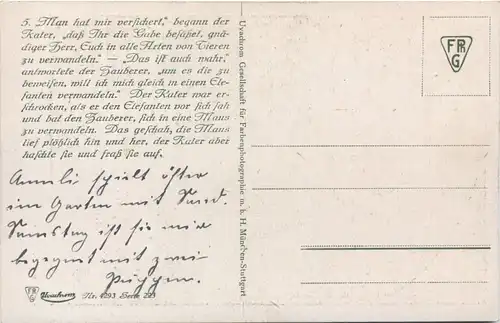 5. „Man hat mir versichert,“ begann der
Kater, „daß Ihr die Gabe besäßet, gnä-
diger Herr, Euch in alle Arten von Tieren
zu verwandeln.“ — „Das ist auch wahr,“
antwortete der Zauberer, „um es dir zu
beweisen, will ich mich gleich in einen Ele-
fanten verwandeln.“ Der Kater war er-
schrocken, als er den Elefanten vor sich sah
und bat den Zauberer, sich in eine Maus
zu verwandeln. Das geschah, die Maus
lief plötzlich hin und her, der Kater aber
haschte sie und fraß sie auf.
Anneli spielt öfter
im Garten mit
Samstag ist sie mir
begegnet mit zwei
Puppen.
FPG Uvachrom Nr. 4293 Serie 223
Uvachrom Gesellschaft für Farbenphotographie m. b. H. München-Stuttgart
FPG